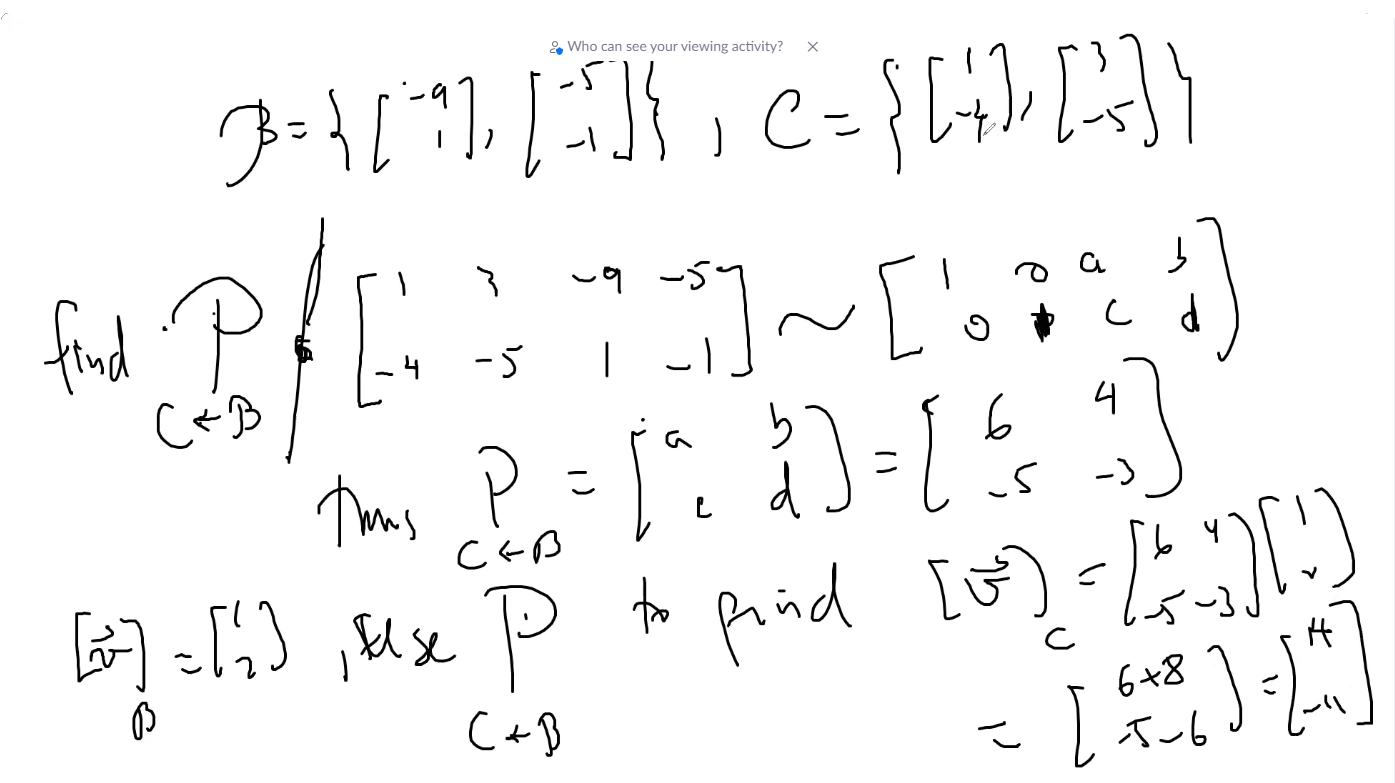 Who can see your viewing activity? ×
B = { [ -9 1 ], [ -5 -1 ] } , C = { [ 1 -4 ], [ 3 -5 ] }
find P C←B [ 1 3 -9 -5 -4 -5 1 -1 ] ~ [ 1 0 a b 0 1 c d ]
Thus P C←B = [ a b c d ] = [ 6 4 -5 -3 ]
[v⃗]B = [ 1 2 ] , Use P C←B to find [v⃗]C = [ 6 4 -5 -3 ] [ 1 2 ]
= [ 6+8 -5-6 ] = [ 14 -11 ]